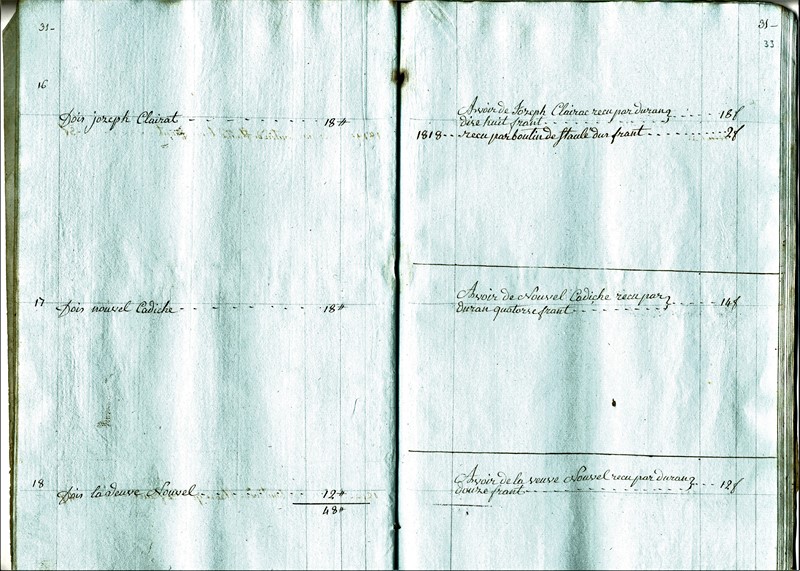 31-
16
Dois joseph Clairat - - - - 18#
17
Dois nouvel Cadiche - - - - 18#
18
Dois la veuve Nouvel - - - - 12#
48#
31-
33
Avoir de Joseph Clairac recu par duran
dixe huit frant - - - - 18f
1818 - - recu par boutin de
frant - - - - 2f
Avoir de Nouvel Cadiche recu par
duran quatorse frant - - - - 14f
Avoir de la veuve Nouvel recu par duran
douze frant - - - - 12f